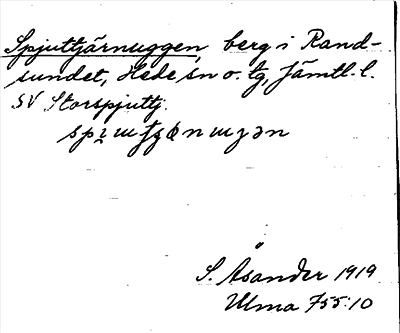 Spjuttjärnuggen, berg i Rand-
sundet, Hede sn o. tg, Jämtl. l.
SV Storspjuttj.
S. Åsander 1919
Ulma 755:10